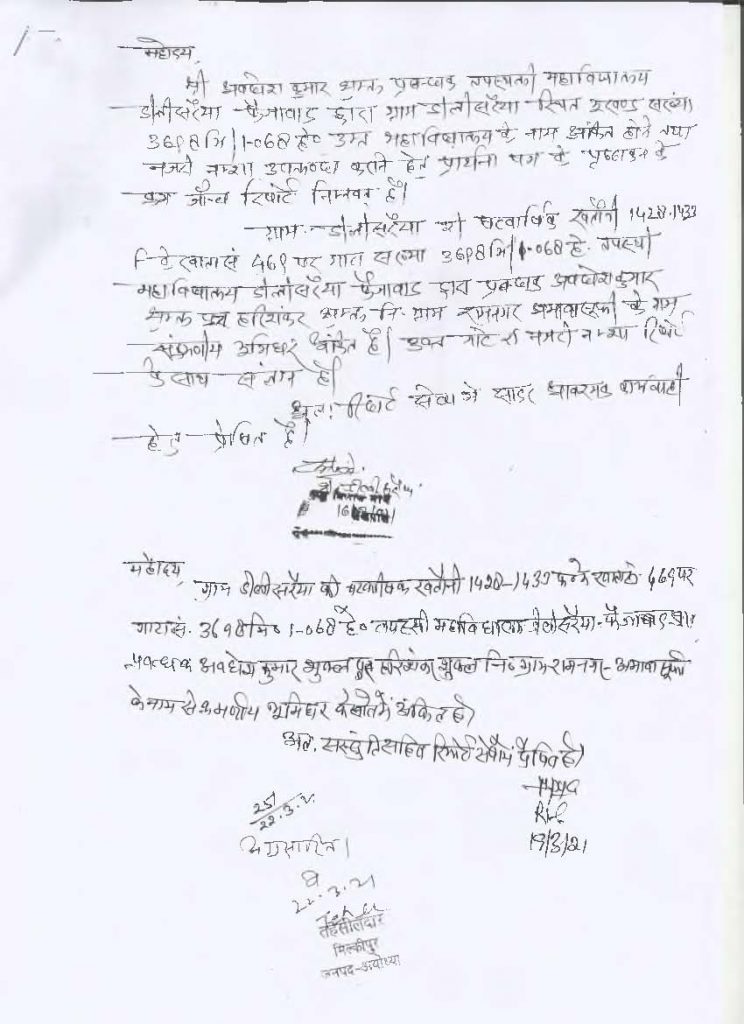 महोदय,
श्री अवधेश कुमार शुक्ल प्रबन्धक तपस्वी महाविद्यालय
डीलीसरैया फैजाबाद द्वारा ग्राम डीलीसरैया स्थित भूखण्ड संख्या
3698मि/1-068हे० उक्त महाविद्यालय के नाम अंकित होने तथा
नजरी नक्शा उपलब्ध कराने हेतु प्रार्थना पत्र के पृष्ठांकन के
जाँच रिपोर्ट निम्नवत् है।
ग्राम- डीलीसरैया की चतवार्षिक खतौनी 1428-1433
F के खाता सं 469 पर गाटा संख्या 3698मि/1-068हे. तपस्वी
महाविद्यालय डीलीसरैया फैजाबाद द्वारा प्रबन्धक अवधेश कुमार
शुक्ल पुत्र हरिशंकर शुक्ल नि. ग्राम रामनगर अमावासूफी के नाम
संक्रमणीय भूमिधर अंकित है। उक्त गाटे का नजरी नक्शा रिपोर्ट
के साथ संलग्न है।
अतः रिपोर्ट सेवा में सादर आवश्यक कार्यवाही
हेतु प्रेषित है।
महोदय,
ग्राम डीलीसरैया की चतवार्षिक खतौनी 1428-1433 फ० के खाता सं. 469 पर
गाटा सं. 3698मि० 1-068हे० तपस्वी महाविद्यालय डीलीसरैया- फैजाबाद द्वारा
प्रबन्धक अवधेश कुमार शुक्ल पुत्र हरिशंकर शुक्ल नि० ग्राम रामनगर- अमावा सूफी
के नाम से क्रमणीय भूमिधर के खाते में अंकित है।
अतः संस्तुति सहित रिपोर्ट सेवा में प्रेषित है।
RI
19/3/21
22.3.21
अग्रसारित।
22.3.21
तहसीलदार
मिल्कीपुर
जनपद-अयोध्या